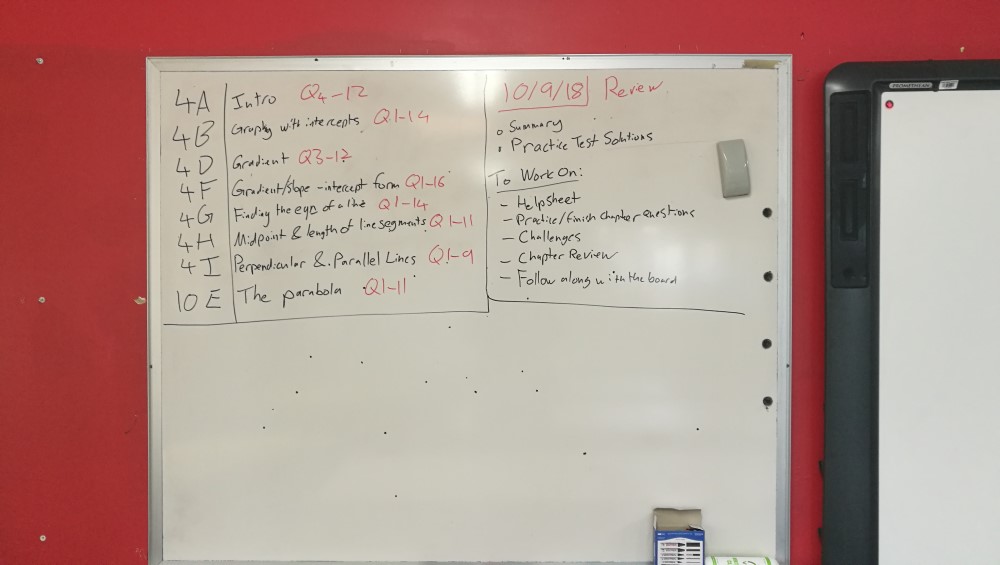 4A Intro Q4-12
4B Graphing with intercepts Q1-14
4D Gradient Q3-12
4F Gradient/slope-intercept form Q1-16
4G Finding the eqn of a line Q1-14
4H Midpoint & length of line segments Q1-11
4I Perpendicular & Parallel Lines Q1-9
10E The parabola Q1-11
10/9/18 Review
Summary
Practice Test Solutions
To Work On:
- Helpsheet
- Practice/finish chapter questions
- Challenges
- Chapter Review
- Follow along with the board
PROMETHEAN